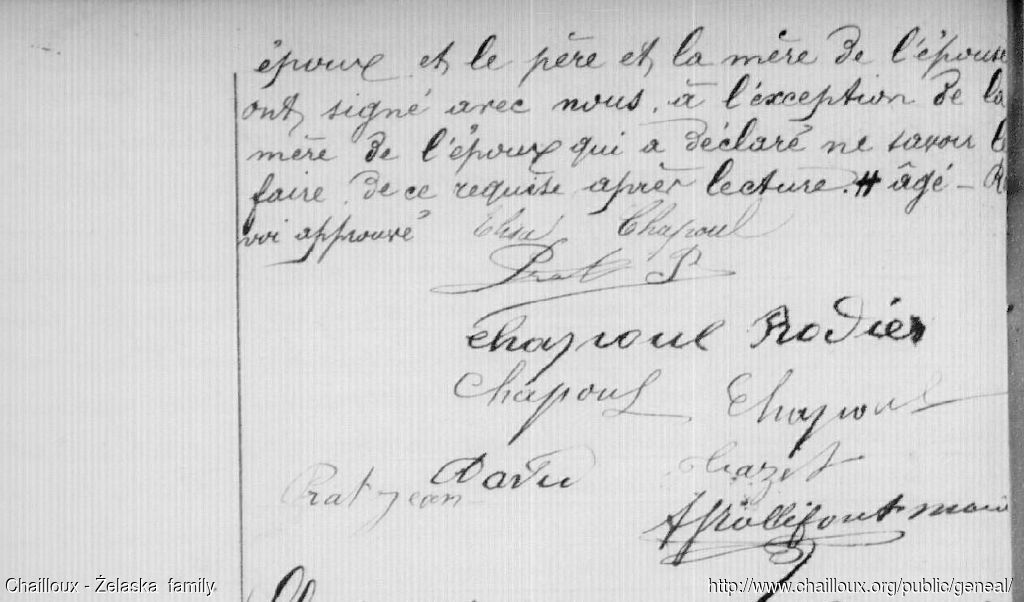 époux et le père et la mère de l'épouse
ont signé avec nous, à l'exception de la
mère de l'époux qui a déclaré ne savoir le
faire de ce requise après lecture. # âgé - Re
voi approuvé Elisa Chapoul
Prat P
Chapoul Rodier
Chapoul Chapoul
Prat jean
Chazet
maire
Chailloux - Želaska family
http://www.chailloux.org/public/geneal/